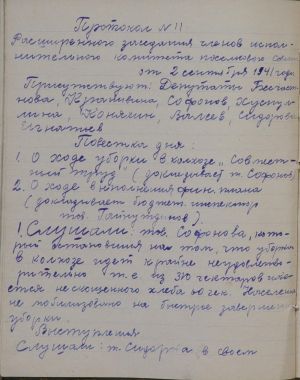 Протокол № 11
Расширенного заседания членов испол-
нительного комитета поселкового совета
от 2 сентября 1941 года
Присутствуют: Депутаты
нова, Кранивина, Софонов,
лина, Конякин, Валеев, Сидорова
Игнатьев
Повестка дня:
1. О ходе уборки в колхозе „Совет-
ский труд" (докладывает т. Софонов)
2. О ходе выполнения фин. плана
(докладывает бюджет. инспектор
тов.
1. Слушали: тов. Софонова, кото-
рый остановился на том, что уборка
в колхозе идет крайне неудовлетво-
рительно т.е. из 310 гектаров
нескошенного хлеба гек. Население
не мобилизовано на быстрое завершение
уборки.
Выступления
Слушали: т. в своем